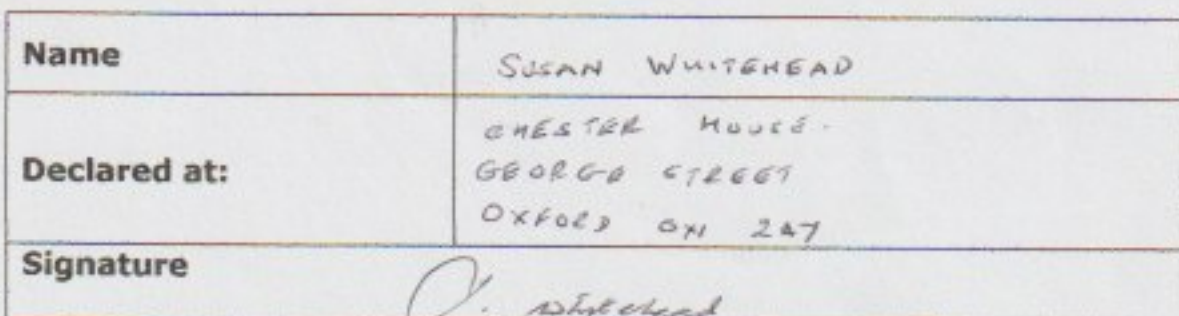 Name
SUSAN WHITEHEAD
Declared at:
CHESTER HOUSE.
GEORGE STREET
OXFORD OX1 2AY
Signature
Whitehead